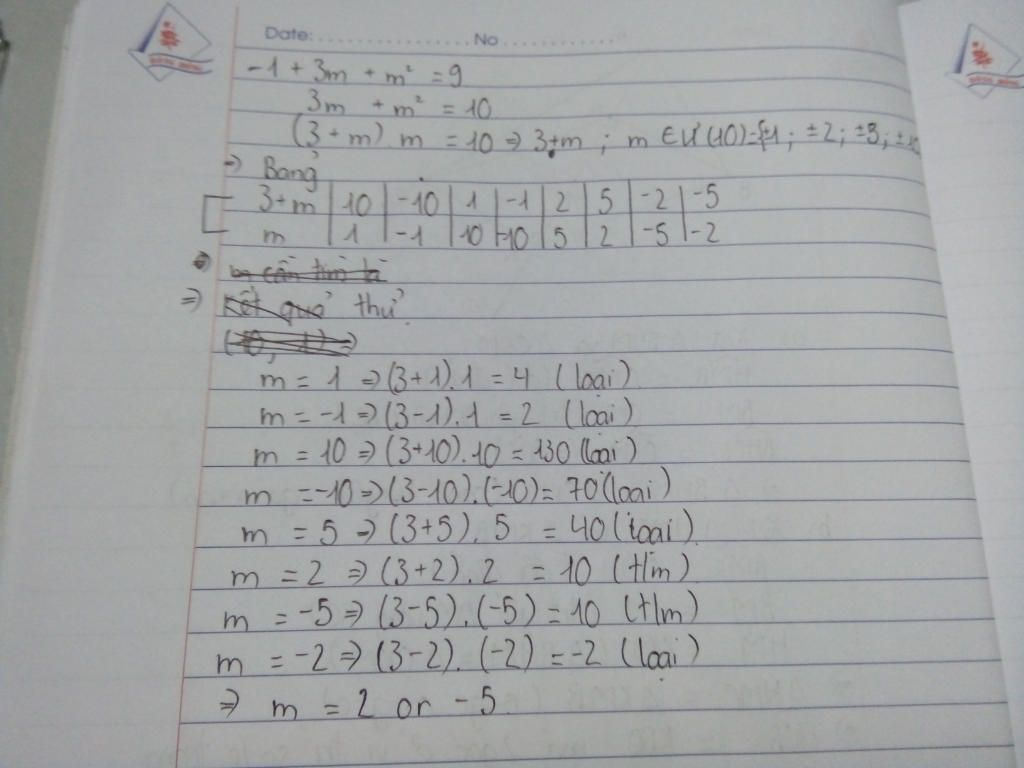 Date: ........................ No ................
-1 + 3m + m² = 9
3m + m² = 10
(3 + m) . m = 10 ⇒ 3+m ; m ∈ Ư(10)={±1 ; ±2 ; ±5 ; ±10
⇒ Bảng
3+m | 10 | -10 | 1 | -1 | 2 | 5 | -2 | -5
m | 1 | -1 | 10 | -10 | 5 | 2 | -5 | -2
⇒ m cần tìm là
⇒ Kết quả thử
m = 1 ⇒ (3+1).1 = 4 (loại)
m = -1 ⇒ (3-1).1 = 2 (loại)
m = 10 ⇒ (3+10).10 = 130 (loại)
m = -10 ⇒ (3-10).(-10) = 70 (loại)
m = 5 ⇒ (3+5). 5 = 40 (loại)
m = 2 ⇒ (3+2).2 = 10 (t/m)
m = -5 ⇒ (3-5).(-5) = 10 (t/m)
m = -2 ⇒ (3-2). (-2) = -2 (loại)
⇒ m = 2 or -5